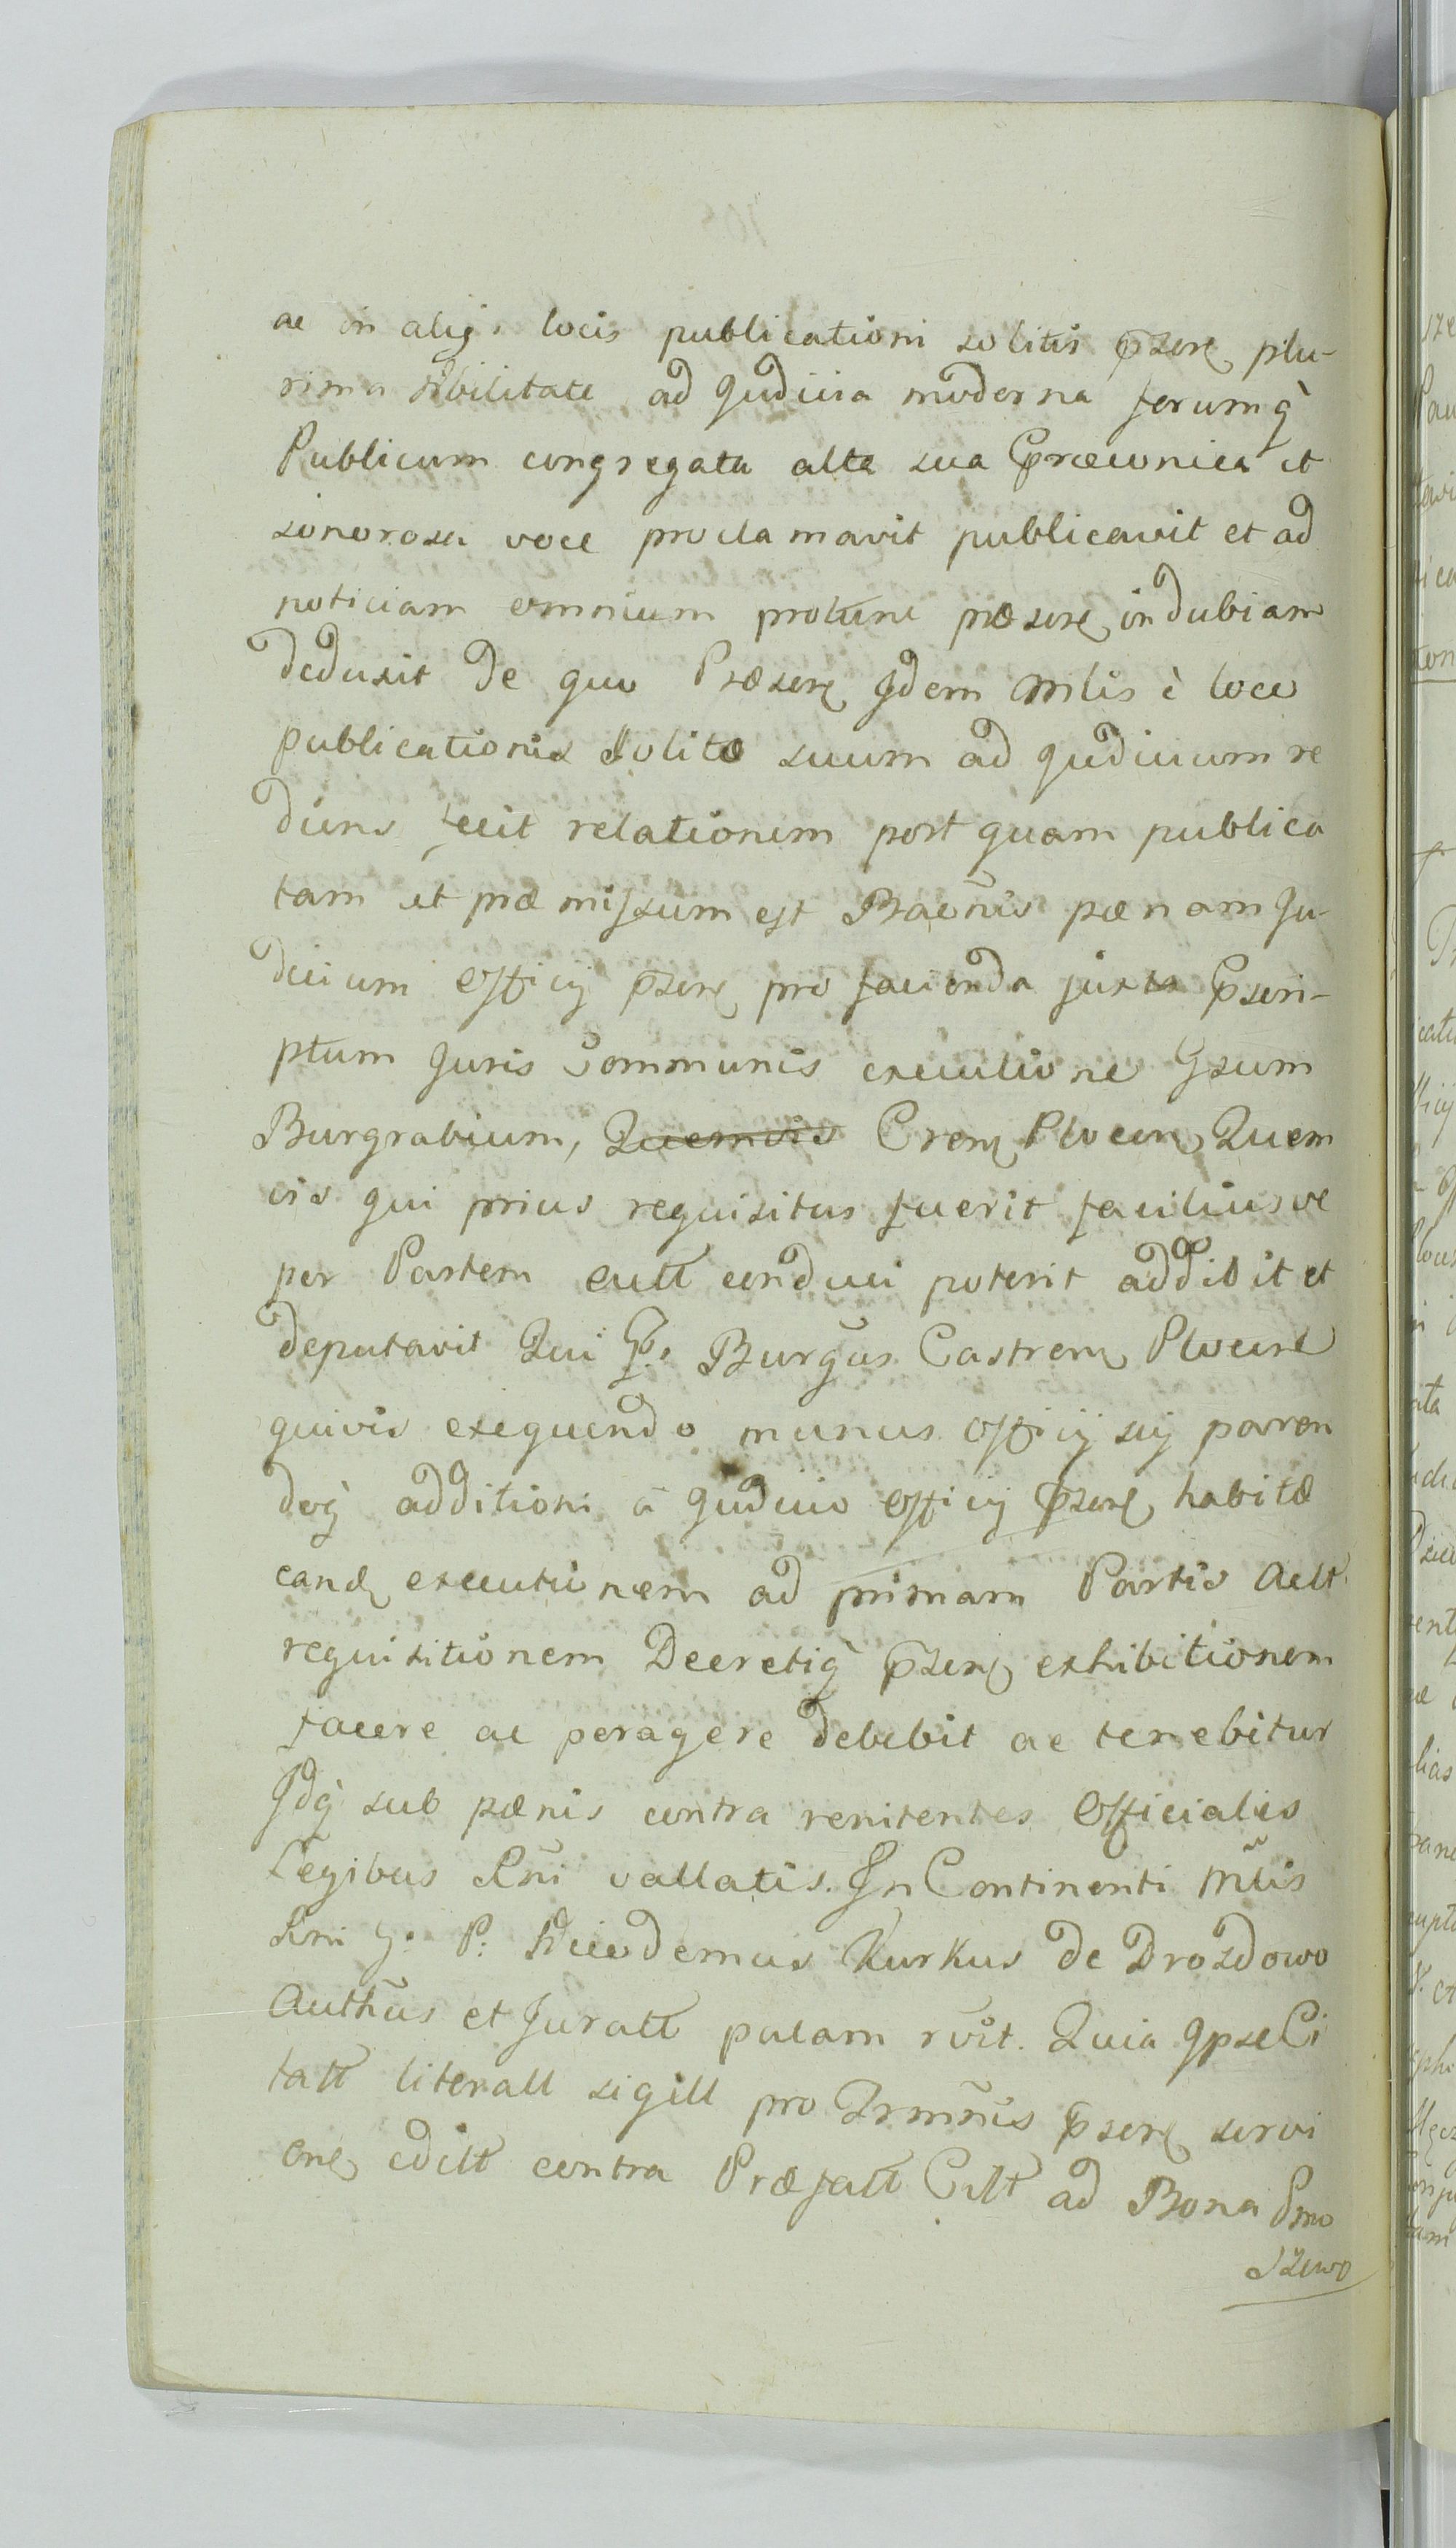 ac in aliq̃s locis publicationi solitis p̃sen̨ plu-
rima Nbilitate ad Judicia moderna forumq̀
Publicum congregata alta sua Præconica et
sonorosa voce proclamavit publicavit et ad
noticiam omnium protunc præsen̨ indubiam
deduxit de quo Præsen̨ Idem Mlis è loco
publicationis solito suum ad Judicium re
diens fecit relationem post quam publica
tam ut præmissum est Bacñis pœnam Ju-
dicium Officij p̃sen̨ pro facienda juxta Præscri-
ptum Juris Communis executione Gsum
Burgrabium, Quemvis Cren̨ Plocen̨ Quem
vis qui prius requisitus fuerit faciliusve
per Partem Actt conduci poterit addidit et
deputavit Qui Gs. Burgus Castren̨ Plocens
quivis exequendo munus Officij sui paren
doq̀ additioni à Judicio Officij p̃sen̨ habitæ
eand̨ executionem ad primam Partis Actt
requisitionem Decretiq̀ p̃sen̨ exhibitionem
facere ac peragere debebit ac tenebitur
Idq̀ sub pœnis contra renitentes Officiales
Legibus Rñi vallatis. In Continenti Mlis
Rñi G. P. Nicodemus Kurkus de Drozdowo
Authũs et Juratt palam rvit. Quia Ipse Ci
tatt literatt sigill pro Trmñis p̃sen̨ servi
en̨ editt contra Præfatt Citt ad Bona Smo
szewo